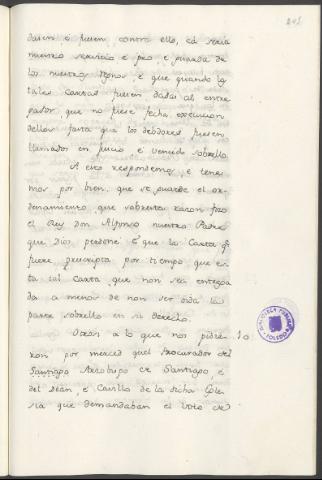 215
diesen é fuesen contra ello, cá seria
nuestro servicio é pro, é guarda de
los nuestros Regnos, é que quando la
tales Cartas fuesen dadas al entre
gador, que no fuese fecha execucion
dellos fasta que los debdores fuesen
llamados en juicio é vencidos sobrello.
A esto respondemos, é tene
mos por bien, que se guarde el or-
denamiento, que sobresta razon fizo
el Rey Don Alfonso nuestro Padre
que Dios perdone. E que la Carta q.
fuere prescripta por tiempo que es
ta tal Carta, que non sea entrega
da a menos de non ser oida la
parte sobrello en su derecho.
Otrosi à lo que nos pidie- 10.
ron por merced quel Procurador del
Santiago Arzobispo de Santiago, é
del Dean, é Cavillo de la dicha Egle-
sia que demandaban el Voto de
BIBLIOTECA PUBLICA
TOLEDO